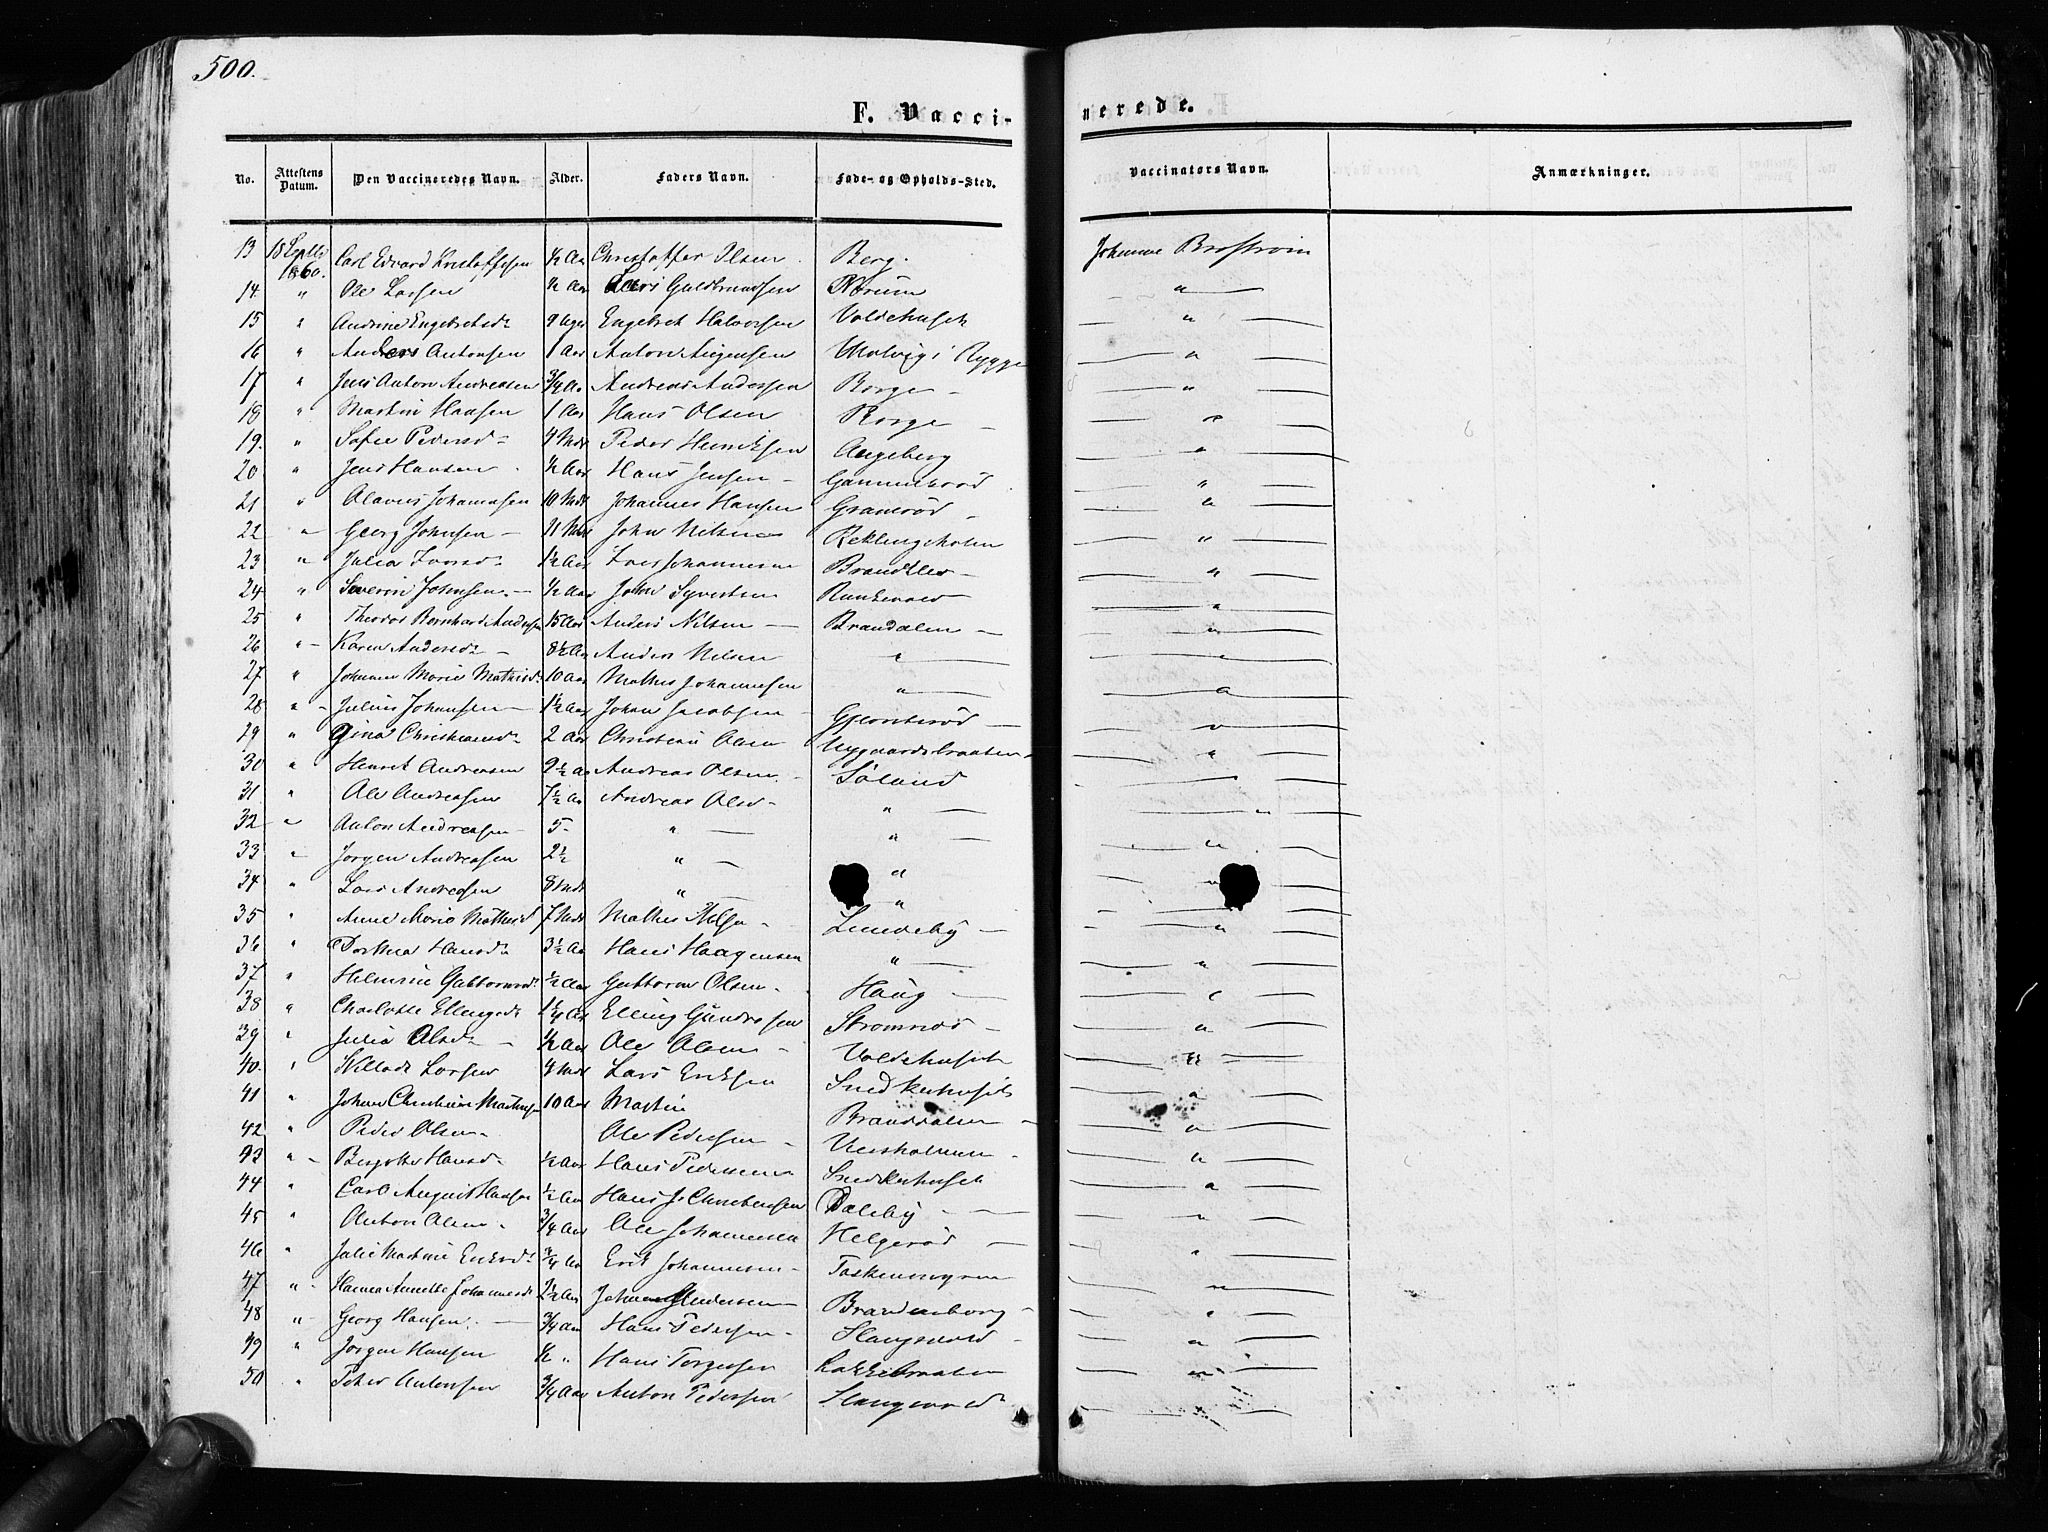 500.
F. Vacci-
nerede.
No. Attestens Datum. Den Vaccineredes Navn. Alder. Faders Navn. Føde- og Opholds-Sted. Vaccinators Navn. Anmærkninger.
13 18 Septbr 1860. Carl Edvard Kristoffersen ½ Aar Christoffer Olsen Berg. Johanne
14 " Ole Larsen ½ Aar Lars Guldbrandsen " 
15 " Andrine Engebretsd. 9 Uger Engebret Halvorsen Voldehuset "
16 " Anders Antonsen 1 Aar Anton Jørgensen i Rygge "
17 " Jens Anton Andreasen ¾ Aar Andreas Andersen Borge "
18 " Martin Hansen 1 Aar Hans Olsen Borge "
19. " Sofie Pedersd. 4 Mdr Peder Henriksen Augeberg "
20 " Jens Hansen ½ Aar Hans Jensen "
21 " Olavus Johannesen 10 Mdr Johannes Hansen Granerød "
22 " Georg Johnsen 11 Mdr John Nilsen "
23 " Julia Iversd. 1½ Aar Iver Johannesen Brandklev "
24 " Severin Johnsen ½ Aar John Syvertsen "
25 " Theodor Bernhard Andersen 15 Aar Anders Nilsen Brandalen "
26 " Karen Andersd. 8½ Aar Anders Nilsen " "
27 " Johanne Marie Mathisd. 10 Aar Mathis Johannesen " "
28 " Julius Johansen 1½ Aar Johan Jacobsen "
29 " Gina Christiansd. 2 Aar Christian Olsen Nygaardsbraaten "
30 " Henrik Andreasen 9½ Aar Andreas Olsen Søland
31 " Ole Andreasen 7½ Aar Andreas Olsen " "
32 " Anton Andreasen 5 " " "
33 " Jørgen Andreasen 2½ " " "
34 " Lars Andreasen 8 Mdr " "
35 " Anne Maria Mathisd. 7 Mdr Mathis Lundeby "
36 " Hansd. 3½ Aar Hans Haagensen " "
37 " Guttormsd. ½ Aar Guttorm Olsen Haug "
38 " Charlotte Ellingsd. 1¼ Aar Elling Gundersen Strømnes "
39 " Julia Olsd. ½ Aar Ole Olsen Voldehuset "
40. " Larsen 4 Mdr Lars Eriksen Snedkerhuset "
41 " Johan Christian Martinsen 10 Aar Martin Branddalen "
42 " Peder Olsen Ole Pedersen "
43 " Hansd. ½ Aar Hans Pedersen Snedkerhuset "
44 " Carl August Hansen ½ Aar Hans J. Christensen Daleby "
45 " Anton Olsen ¾ Aar Ole Johannesen Helgerød "
46 " Julie Martine Eriksd. ¾ Aar Erik Johannesen Taskenmyren "
47 " Hanna Annette Johannesd. 2½ Aar Andersen Brandenborg "
48 " Georg Hansen ¾ Aar Hans Pedersen "
49 " Jørgen Hansen ½ " Hans Torgersen "
50 " Peter Antonsen ¾ Aar Anton Pedersen